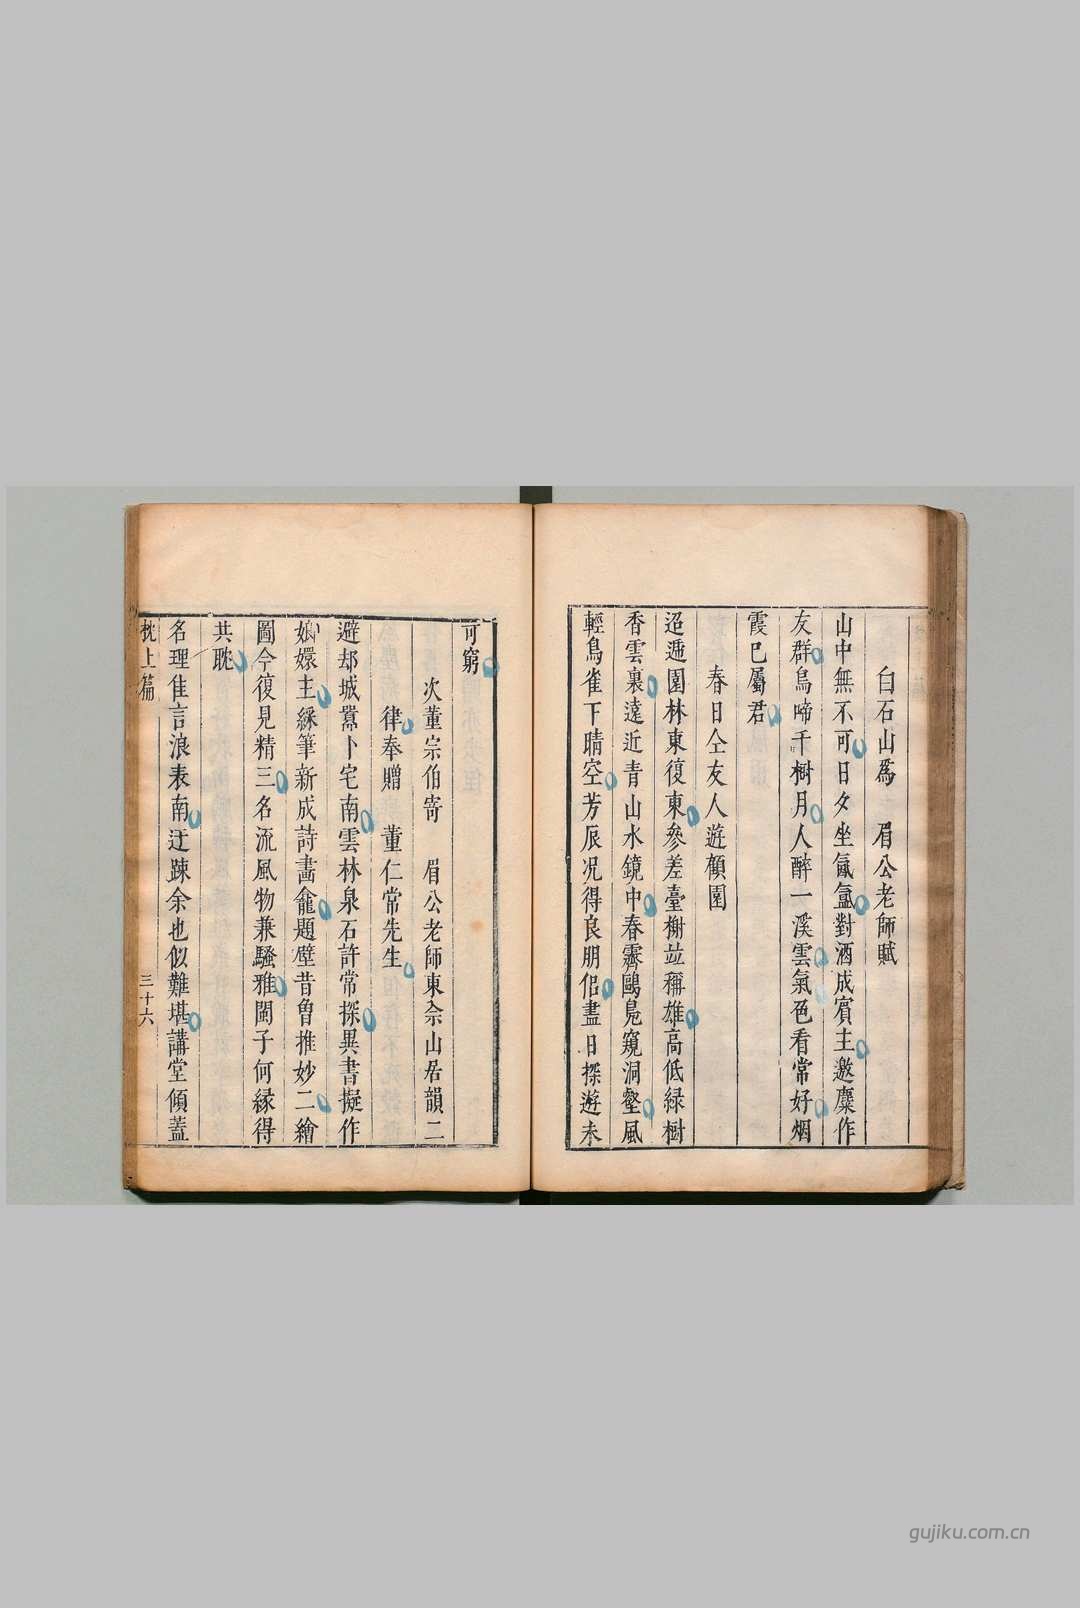 白石山爲　眉公老師賦
山中無不可日夕坐氤氳對酒成賓主邀麋作
友群鳥啼千樹月人醉一溪雲氣色看常好烟
霞已屬君
春日仝友人遊顧園
迢遞園林東復東參差臺榭並稱雄高低緑樹
香雲裏遠近青山水鏡中春霽鷗鳧窺洞壑風
輕鳥雀下晴空芳辰况得良朋侶盡日探遊未
可窮
次董宗伯寄　眉公老師東佘山居韻二
律奉贈　董仁常先生
避却城囂卜宅南雲林泉石許常探異書擬作
娘嬛主綵筆新成詩畫龕題壁昔曾推妙二繪
圖今復見精三名流風物兼騷雅闍子何緣得
共耽
名理佳言浪表南迂踈余也似難堪講堂傾蓋
枕上篇
三十六
gujiku.com.cn